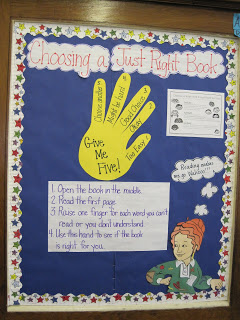 Choosing a Just Right Book
Choose another
Might be hard
Good Choice
Okay
Too Easy
Give
Me
Five!
Reading makes
me go Wahoo!!!
1. Open the book in the middle.
2. Read the first page.
3. Raise one finger for each word you can't
read or you don't understand.
4. Use this hand to see if the book
is right for you.